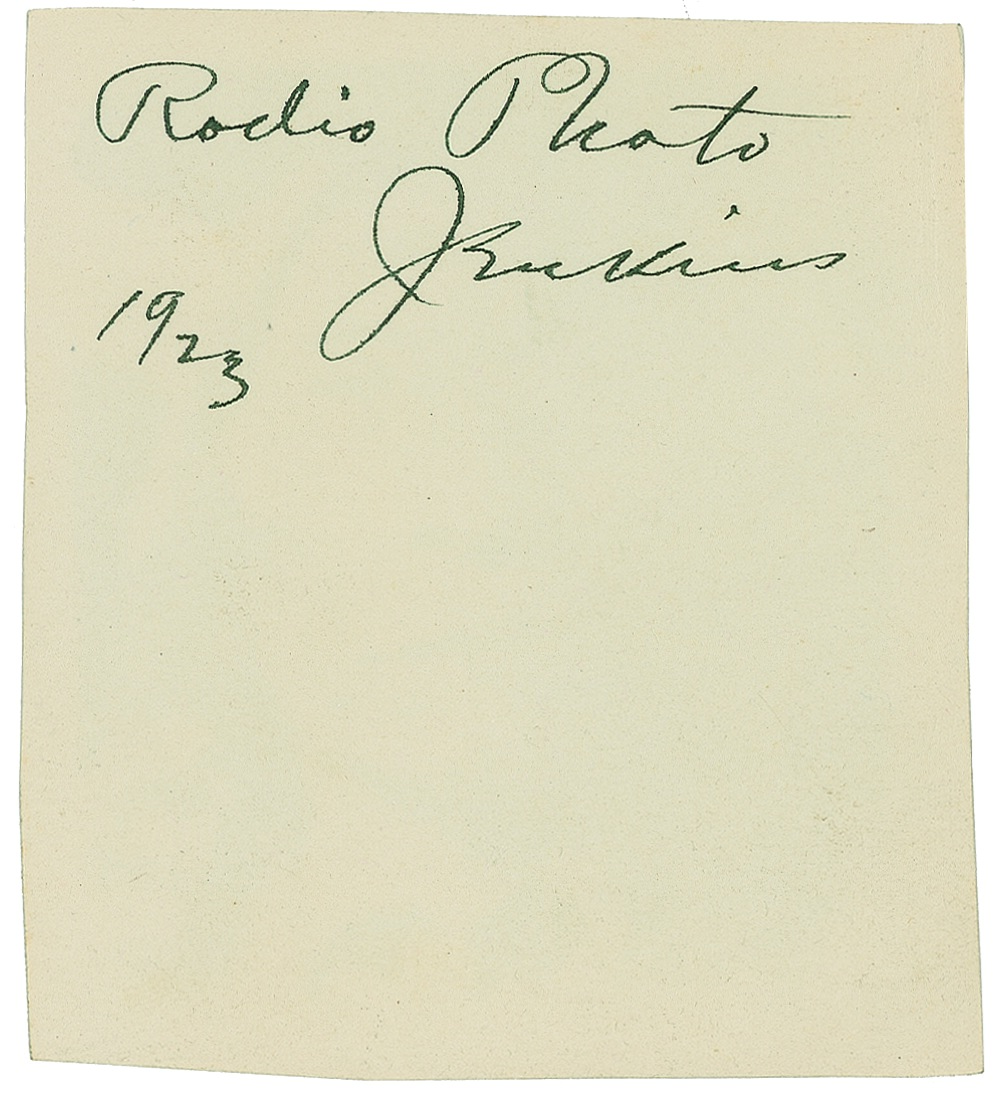 Radio Photo
Jenkins
1923